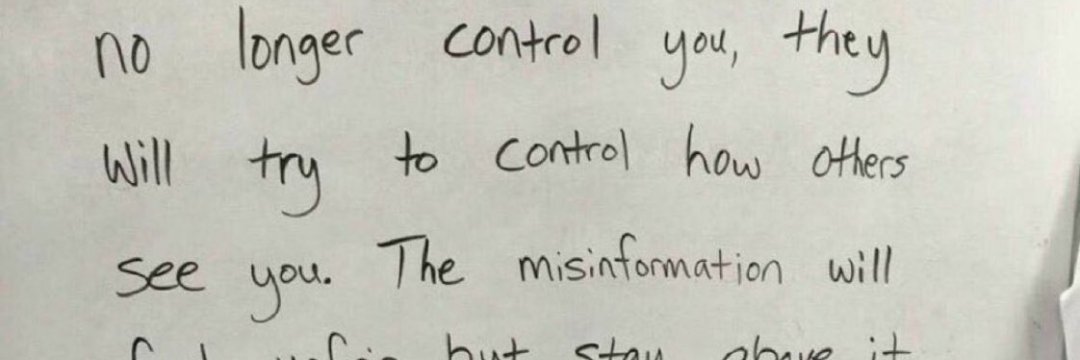 no longer control you, they
will try to control how others
see you. The misinformation will
but stay above it